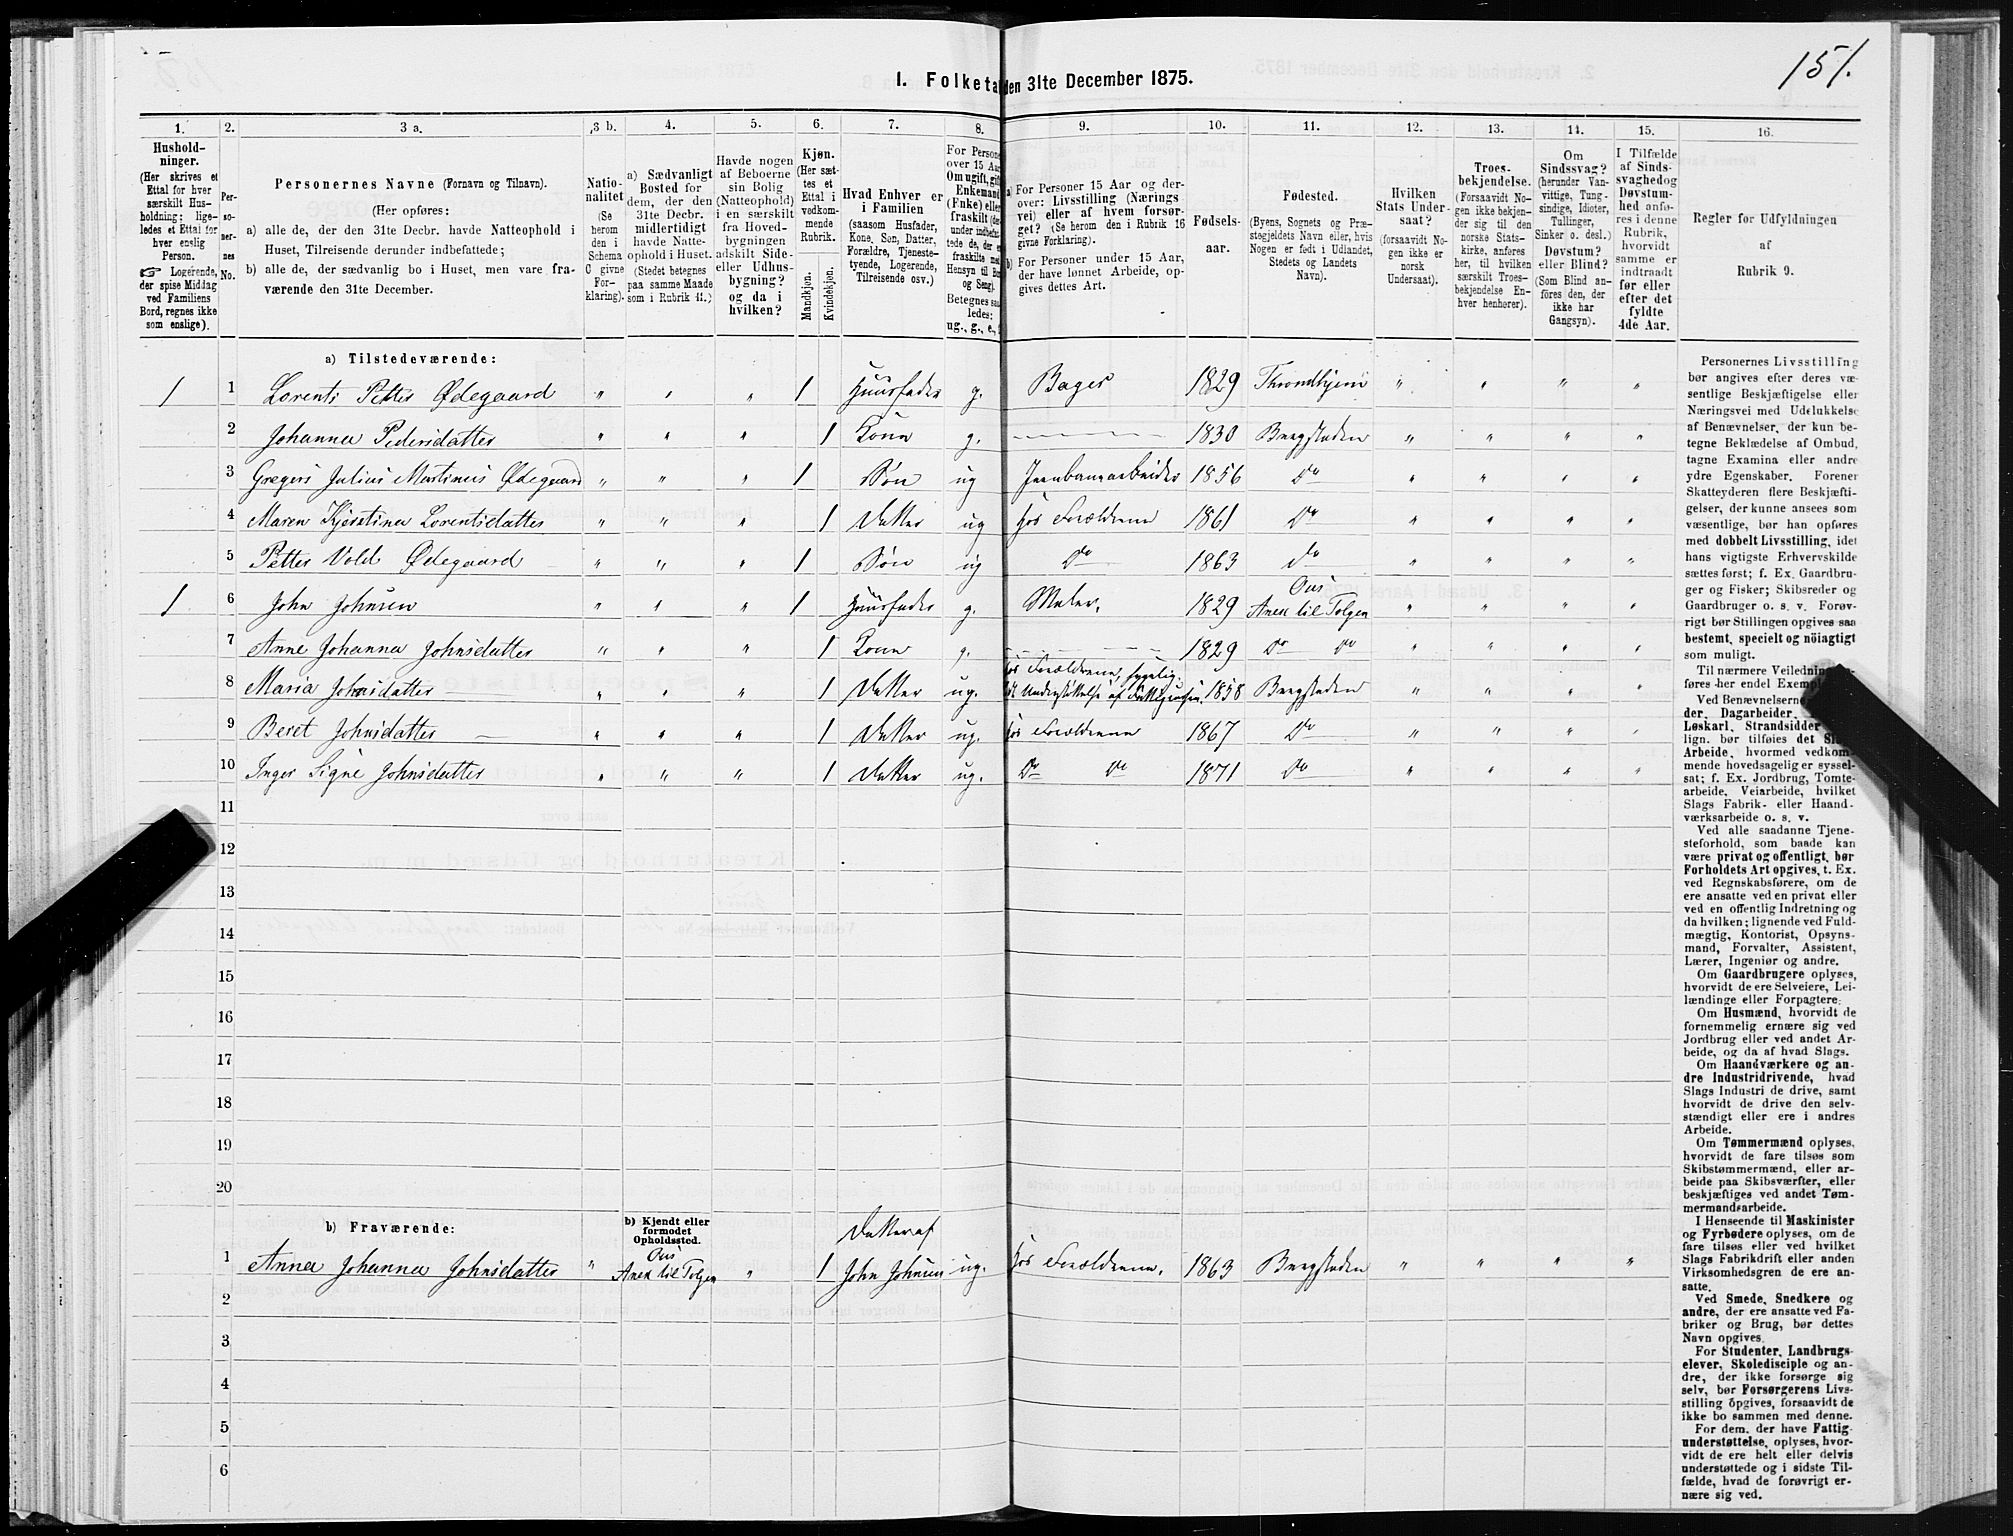 151.
I. Folketal den 31te December 1875.
1. 2. 3 a. 3 b. 4. 5. 6. 7. 8. 9. 10. 11. 12. 13. 14. 15. 16.
Hushold-
ninger.
(Her skrives et
Ettal for hver
særskilt Hus-
holdning; lige-
ledes et Ettal for
hver enslig
Person.
☞ Logerende,
der spise Middag
ved Familiens
Bord, regnes ikke
som enslige).
Per-
so-
ner-
nes
No.
Personernes Navne (Fornavn og Tilnavn).
(Her opføres:
a) alle de, der den 31te Decbr. havde Natteophold i
Huset, Tilreisende derunder indbefattede;
b) alle de, der sædvanlig bo i Huset, men vare fra-
værende den 31te December.
Natio-
nalitet
(Se
herom
den i
Schema
C givne
For-
klaring).
a) Sædvanligt
Bosted for
dem, der den
31te Decbr.
midlertidigt
havde Natte-
ophold i Huset.
(Stedet betegnes
paa samme Maade
som i Rubrik 11.)
Havde nogen
af Beboerne
sin Bolig
(Natteophold)
i en særskilt
fra Hoved-
bygningen
adskilt Side-
eller Udhus-
bygning?
og da i
hvilken?
Kjøn.
(Her sæt-
tes et
Ettal i
vedkom-
mende
Rubrik.
Mandkjøn.
Kvindekjøn.
Hvad Enhver er
i Familien
(saasom Husfader,
Kone, Søn, Datter,
Forældre, Tjeneste-
tyende, Logerende,
Tilreisende osv.)
For Persone
over 15 Aar
Om ugift, gift
Enkemand
(Enke) eller
fraskilt (der
under indbefat-
tede de, der e
fraskilte med
Hensyn til Bo
og Seng).
Betegnes saa
ledes:
ug., g., e.,
a) For Personer 15 Aar og der-
over: Livsstilling (Nærings
vei) eller af hvem forsør-
get? (Se herom den i Rubrik 16
givne Forklaring).
b) For Personer under 15 Aar,
der have lønnet Arbeide, op-
gives dettes Art.
Fødsels-
aar.
Fødested.
(Byens, Sognets og Præ-
stegjeldets Navn eller, hvis
Nogen er født i Udlandet,
Stedets og Landets
Navn).
Hvilken
Stats Under-
saat?
(forsaavidt No-
gen ikke er
norsk
Undersaat).
Troes-
bekjendelse.
(Forsaavidt No-
gen ikke bekjen-
der sig til den
norske Stats-
kirke, anføres
her, til hvilken
særskilt Troes-
bekjendelse En-
hver henhører).
Om
Sindssvag?
(herunder Van-
vittige, Tung-
sindige, Idioter,
Tullinger,
Sinker o. desl.)
Døvstum?
eller Blind?
(Som Blind an-
føres den, der
ikke har
Gangsyn).
I Tilfælde
af Sinds-
svaghed og
Døvstum-
hed anfø-
res i denne
Rubrik,
hvorvidt
samme er
indtraadt
før eller
efter det
fyldte
4de Aar.
Regler for Udfyldningen
af
Rubrik 9.
a) Tilstedeværende:
1 1 Lorents Petter Ødegaard " " " 1 Huusfader g. Bager 1829 Throndhjem " " " "
2 Johanna Pedersdatter " " " 1 Kone g. 1830 Bergstaden " " " "
3 Gregers Julius Martinus Ødegaard " " " 1 Søn ug Jernbanearbeider 1856 Do " " " "
4 Maren Kjerstina Lorentsdatter " " " 1 Datter ug hos Forældrene 1861 Do " " " "
5 Petter Vold Ødegaard " " " 1 Søn ug Do 1863 do " " " "
1 6 John Johnsen " " " 1 Huusfader g. Maler. 1829 Ous Anex til Tolgen " " " "
7 Anne Johanna Johnsdatter " " " 1 Kone g. 1829 Do Do " " " "
8 Maria Johnsdatter " " " 1 Datter ug. hos Forældrene, sygelig. Understøttelse af Fattigvæsen. 1858 Bergstaden " " " "
9 Beret Johnsdatter " " " 1 Datter ug. hos Forældrene 1867 Do " " " "
10 Inger Signe Johnsdatter " " " 1 Datter ug. Do Do 1871 Do " " " "
11
12
13
14
15
16
17
18
19
20
b) Fraværende:
b) Kjendt eller
formodet
Opholdssted.
1 Anna Johanna Johnsdatter " Ous Anex til Tolgen " 1 Datter af John Johnsen ug. hos Forældrene. 1863 Bergstaden " " " "
2
3
4
5
6
Personernes Livsstilling
bør angives efter deres væ-
sentlige Beskjæftigelse eller
Næringsvei med Udelukkelse
af Benævnelser, der kun be-
tegne Beklædelse af Ombud,
tagne Examina eller andre
ydre Egenskaber. Forener
Skatteyderen flere Beskjæfti-
gelser, der kunne ansees som
væsentlige, bør han opføres
med dobbelt Livsstilling, idet
hans vigtigste Erhvervskilde
sættes først; f. Ex. Gaardbru-
ger og Fisker; Skibsreder og
Gaardbruger o. s. v. Forøv-
rigt bør Stillingen opgives saa
bestemt, specielt og nöiagtigt
som muligt.
Til nærmere Veiledning
føres her endel Exemp
Ved Benævnelserne
der, Dagarbeider,
Løskarl, Strandsidder
lign. bør tilføies det Sl
Arbeide, hvormed vedkom-
mende hovedsagelig er syssel-
sat; f. Ex. Jordbrug, Tomte-
arbeide, Veiarbeide, hvilket
Slags Fabrik- eller Haand-
værksarbeide o. s. v.
Ved alle saadanne Tjene-
steforhold, som baade kan
være privat og offentligt, bør
Forholdets Art opgives, t. Ex.
ved Regnskabsførere, om de
ere ansatte ved en privat eller
ved en offentlig Indretning og
da hvilken; lignende ved Fuld-
mægtig, Kontorist, Opsyns-
mand, Forvalter, Assistent,
Lærer, Ingeniør og andre.
Om Gaardbrugere oplyses,
hvorvidt de ere Selveiere, Lei-
lændinge eller Forpagtere.
Om Husmænd, hvorvidt de
fornemmelig ernære sig ved
Jordbrug eller ved andet Ar-
beide, og da af hvad Slags.
Om Haandværkere og an-
dre Industridrivende, hvad
Slags Industri de drive, samt
hvorvidt de drive den selv-
stændigt eller ere i andres
Arbeide.
Om Tømmermænd oplyses,
hvorvidt de fare tilsøs som
Skibstømmermænd, eller ar-
beide paa Skibsværfter, eller
beskjæftiges ved andet Tøm-
mermandsarbeide.
I Henseende til Maskinister
og Fyrbødere oplyses, om de
fare tilsøs eller ved hvilket
Slags Fabrikdrift eller anden
Virksomhedsgren de ere an-
satte.
Ved Smede, Snedkere og
andre, der ere ansatte ved Fa-
briker og Brug, bør dettes
Navn opgives.
For Studenter, Landbrugs-
elever, Skoledisciple og an-
dre, der ikke forsørge sig
selv, bør Forsørgerens Livs-
stilling opgives, forsaavidt de
ikke bo sammen med denne.
For dem, der have Fattig-
understøttelse, oplyses, hvor-
vidt de ere helt eller delvis
understøttede og i sidste Til-
fælde, hvad de forøvrigt er-
nære sig ved.